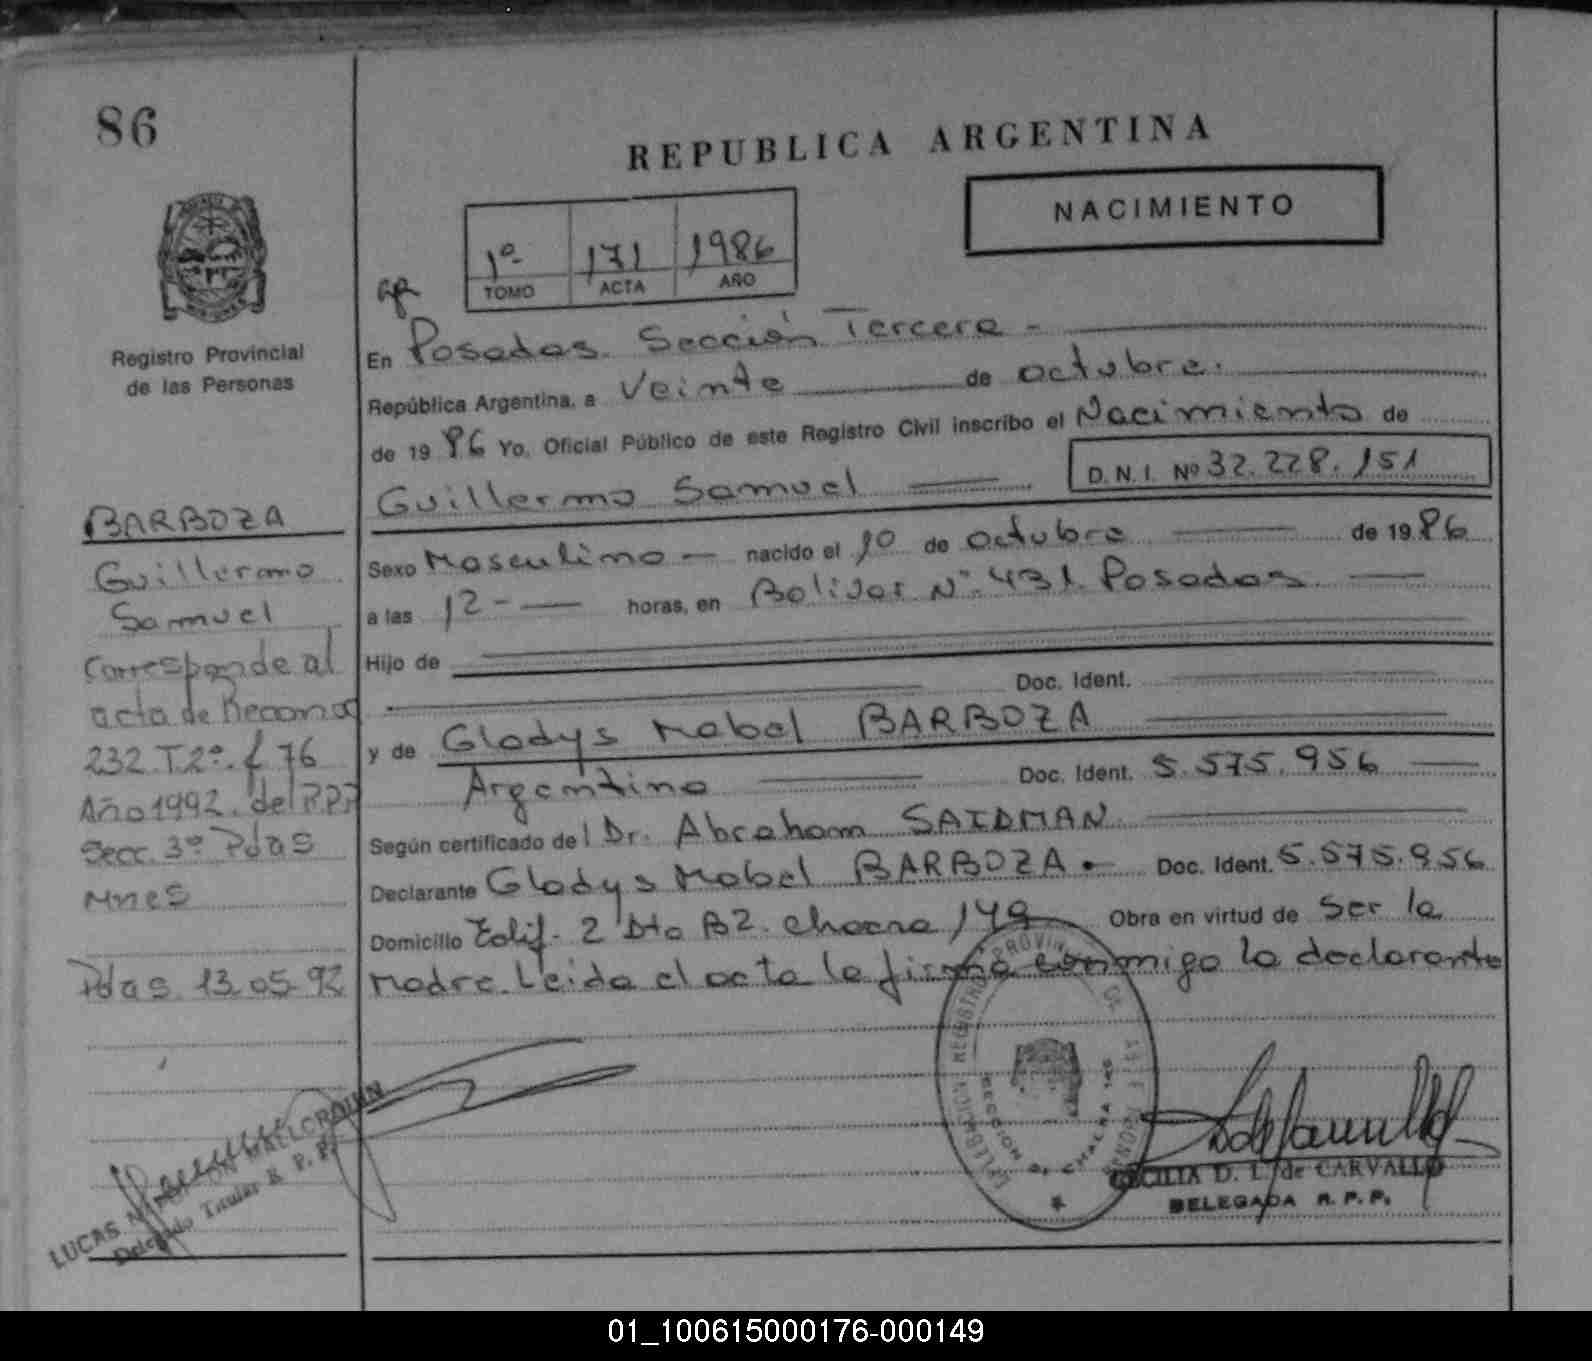 86
REPUBLICA ARGENTINA
NACIMIENTO
1º 171 1986
TOMO ACTA AÑO
Registro Provincial
de las Personas
En Posadas Sección Tercera -
República Argentina, a Veinte de octubre.
de 1986 Yo, Oficial Público de este Registro Civil inscribo el Nacimiento de
Guillermo Samuel D.N.I. Nº 32.228.151
Sexo Masculino - nacido el 10 de octubre de 1986
a las 12 - horas, en Bolivar Nº 431. Posadas
Hijo de
Doc. Ident.
y de Gladys Mabel BARBOZA
Argentina Doc. Ident. 5.575.956
Según certificado del Dr. Abraham SAIDMAN
Declarante Gladys Mabel BARBOZA.- Doc. Ident. 5.575.956
Domicilio Edif. 2 Dto B2. Chacra 149 Obra en virtud de ser la
Madre. Leida el acta la firma conmigo la declarante
BARBOZA
Guillermo
Samuel
Corresponde al
acta de Reconoc
232.T.2º.f 76
Año 1992. del R.P.P
Secc. 3º Pdas
Mnes
Pdas. 13.05.92
LUCAS
Delegado Titular R. P. P.
CECILIA D. L. de CARVALLO
DELEGADA R. P. P.
01_100615000176-000149